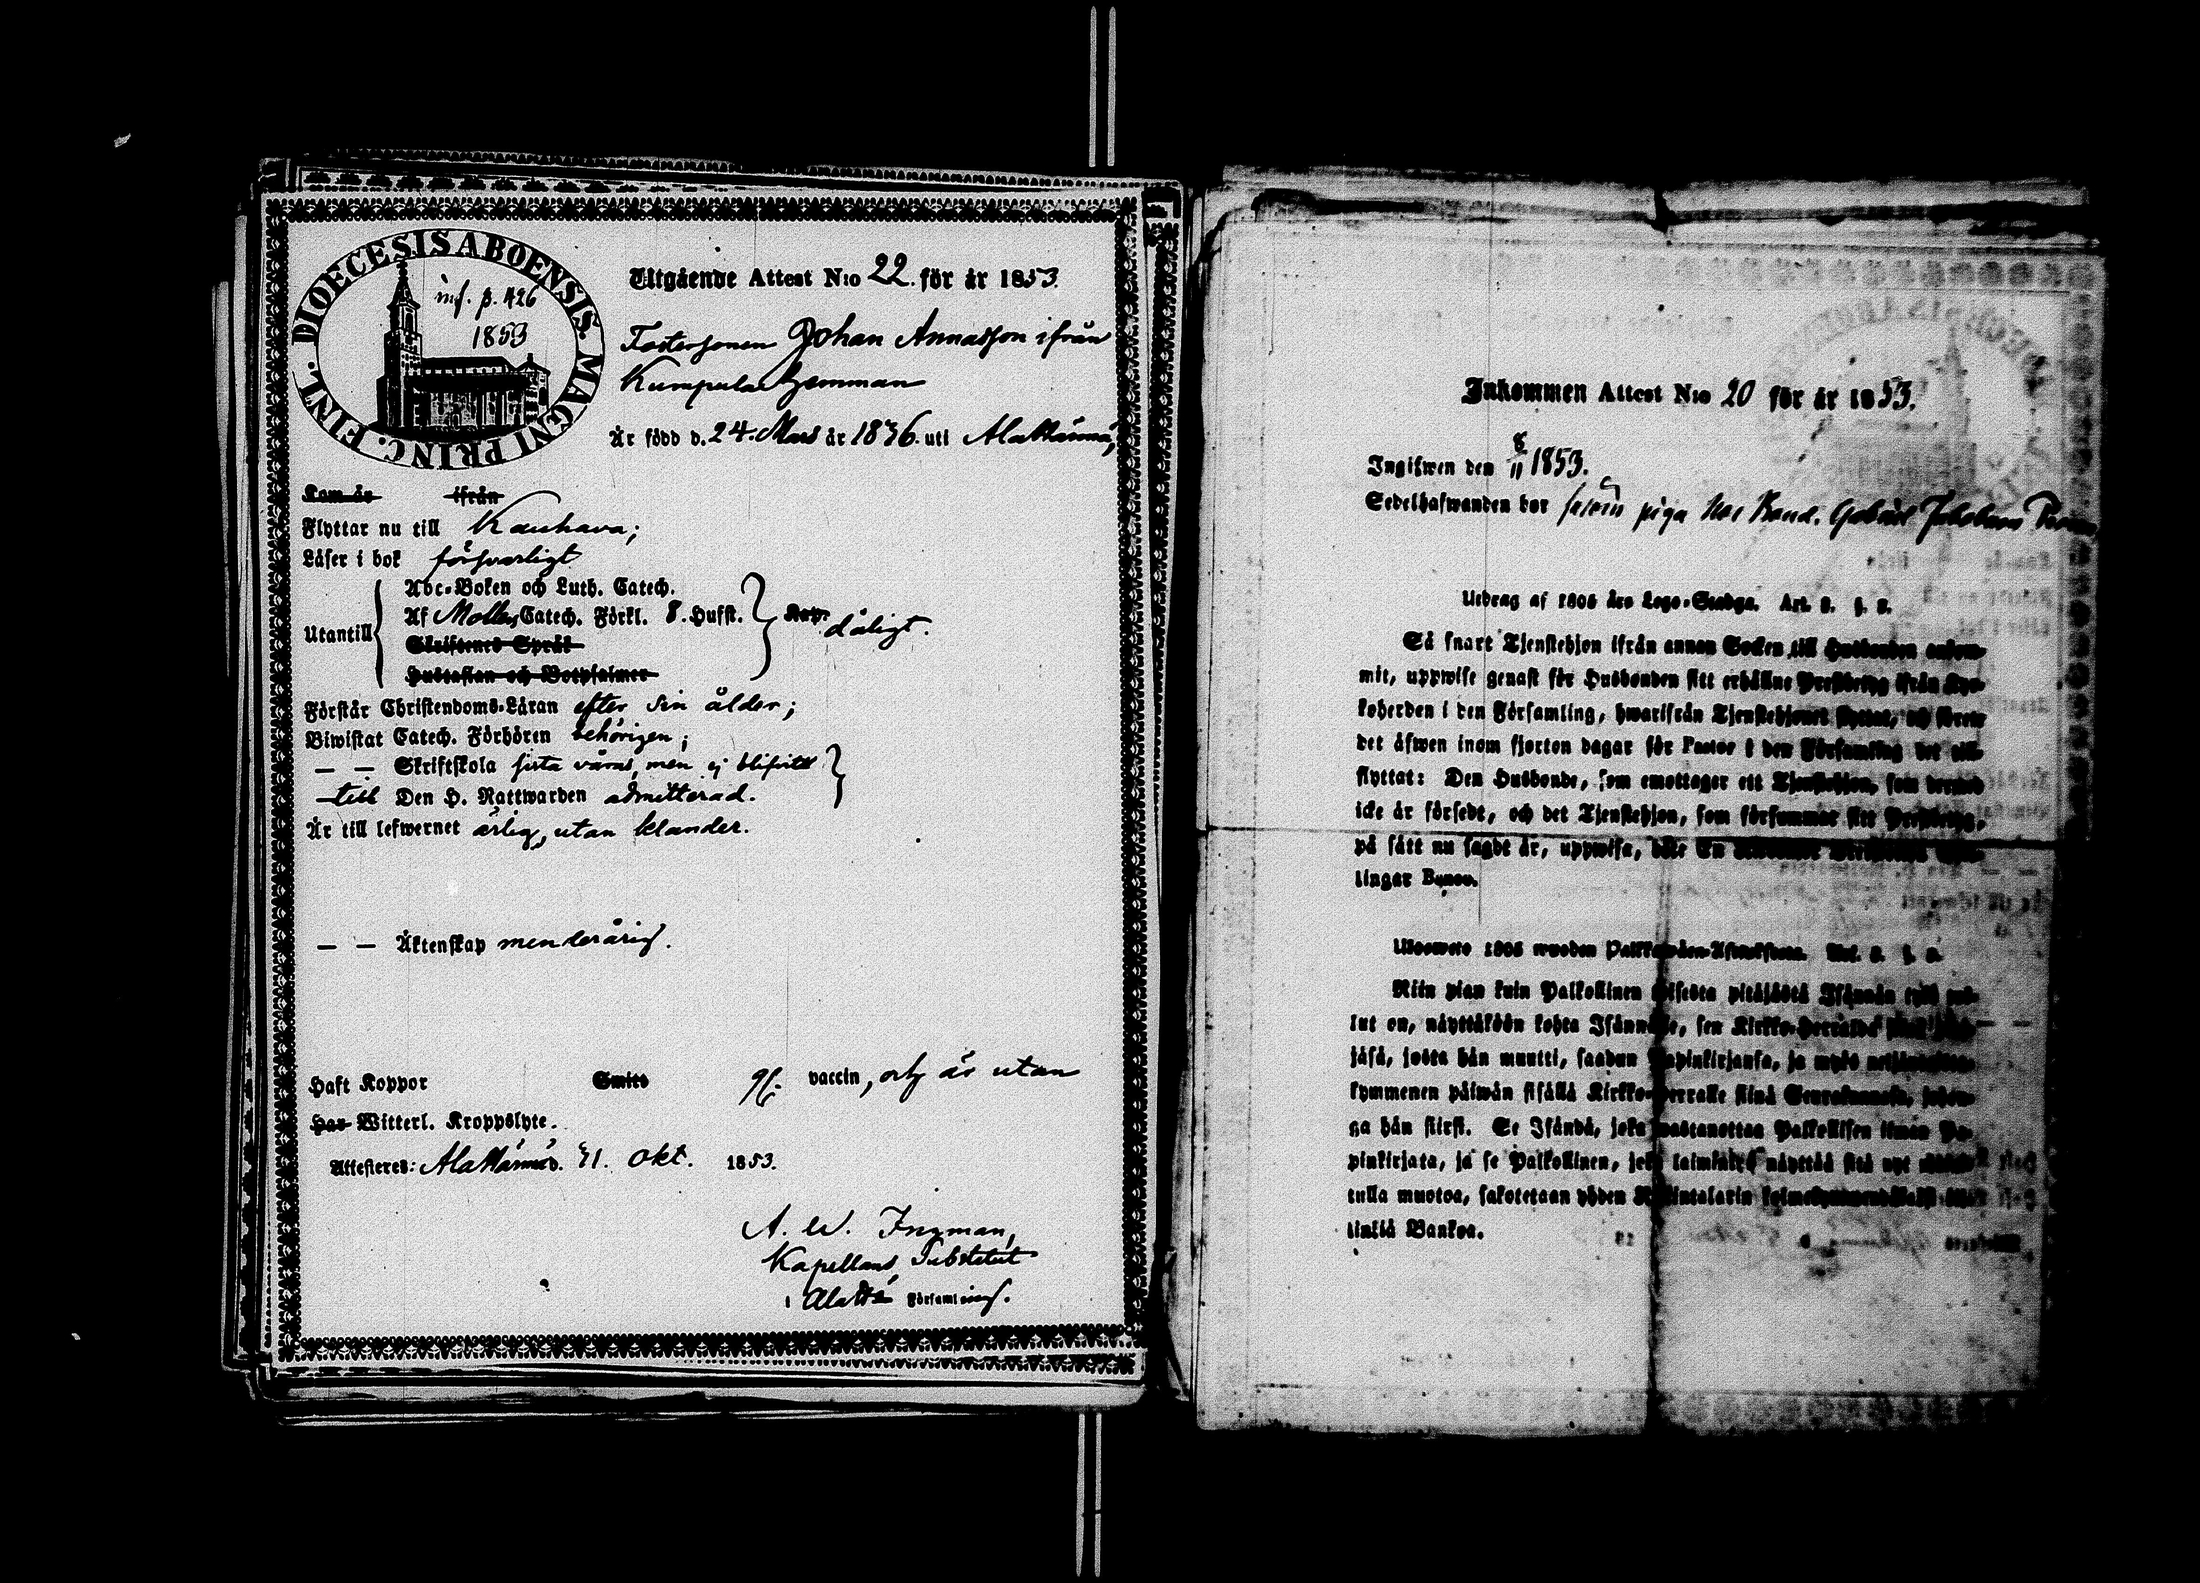 DIOECESIS ABOENSIS. MAGNI PRINC. FINL.
inf. p. 426
1853
Utgående Attest N:o 22. för år 1853.
Fostersonen Johan Annasson ifrån
Kumpula hemman
Är född d. 24. Mars år 1836. uti Alahärmä,
Kom år ifrån
Flyttar nu till Kauhava;
Läser i bok försvarligt
Abc-Boken och Luth. Catech.
Utantill Af Mollers Catech. Förkl. 8. Hufst. dåligt.
Skriftenes Språk
Hustaflan och Botpsalmer
Förstår Christendoms-Läran efter sin ålder;
Biwistat Catech. Förhören behörigen;
— — Skriftskola sista våras, men ej blifvit
till Den H. Nattwarden admitterad.
Är till lefwernet ärlig, utan klander.
— — Äktenskap minderårig.
Haft Koppor Smitt vaccin, och är utan
Har Witterl. Kroppslyte.
Attesteres: Alahärmä d. 31. Okt. 1853.
A. W. Ingman,
Kapellans Substitut
i Församling.
Inkommen Attest N:o 20 för år 1853.
Ingifwen den 8/11 1853.
Sedelhafwanden bor piga hos Bond. Gabriel Jakobson
Utdrag af 1805 års Lego-Stadga. Art. §.
Så snart Tjenstehjon ifrån annan Socken till Husbonden ankom-
mit, uppwise genast för Husbonden sitt erhållne Prestbetyg ifrån Kyr-
koherden i den Församling, hwarifrån Tjenstehjonet flyttat, och förete
det äfwen inom fjorton dagar för Pastor i den Församling det till-
flyttat: Den Husbonde, som emottager ett Tjenstehjon, som dermed
icke är försedt, och det Tjenstehjon, som försummar sitt Prestbetyg,
på sätt nu sagdt är, uppwisa, böte En
lingar Banco.
1805 wuoden Palkkawäen-Asetuksesta.
Niin pian kuin Palkollinen toisesta pitäjästä Isännän tykö tul-
lut on, näyttäköön kohta Isännälle, sen Kirkko-Herralda
jäsä, josta hän muutti, saadun Papinkirjansa, ja myös neljäntoista-
kymmenen päiwän sisällä Kirkko-Herralle siinä Seurakunnasa, johon-
ga hän siirsi. Se Isändä, joka wastanottaa Palkollisen ilman Pa-
pinkirjata, ja se Palkollinen, joka laiminlyö näyttää sitä nyt
tulla muotoa, sakotetaan yhden Riksintalarin
linkiä Bankoa.